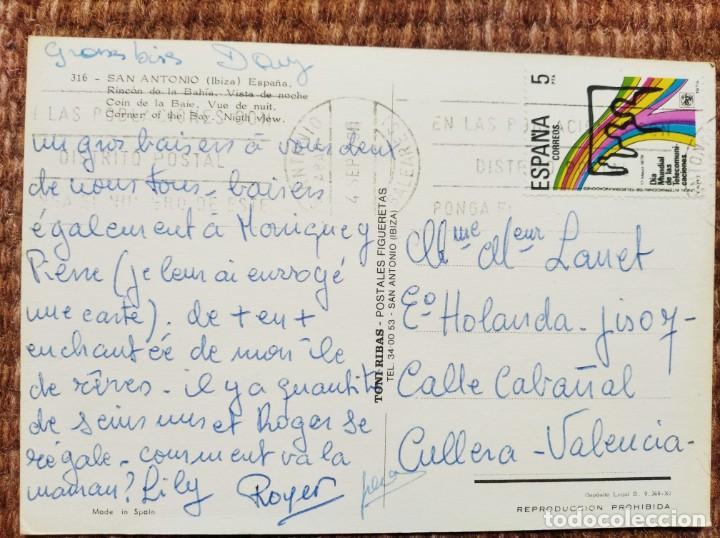 Grosses bises Dany
316 - SAN ANTONIO (Ibiza) España.
Rincón de la Bahía. Vista de noche
Coin de la Baie. Vue de nuit.
Corner of the Bay. Nigth view.
un gros baisers à vous deux
de nous tous - baisers
également à Monique y
Pierre (je leur ai envoyé
une carte). de + en +
enchantée de mon île
de rêves - il y a quantité
de seins nus et Roger se
régale - comment va la
maman? Lily Royer
Made in Spain
TONI RIBAS - POSTALES FIGUERETAS
TEL. 34 00 53 - SAN ANTONIO (IBIZA)
EN LAS
DISTRITO POSTAL
NUMERO DE ESTE
BALEARES
EN LAS
PONGA
ESPAÑA
CORREOS
5 PTA
Dia
Mundial
de las
Telecomuni-
caciones.
Mme Meur Lanet
Eº Holanda - piso 7 -
Calle Cabañal
Cullera - Valencia -
Depósito Legal B.
REPRODUCCION PROHIBIDA
todocoleccion
todocoleccion.net